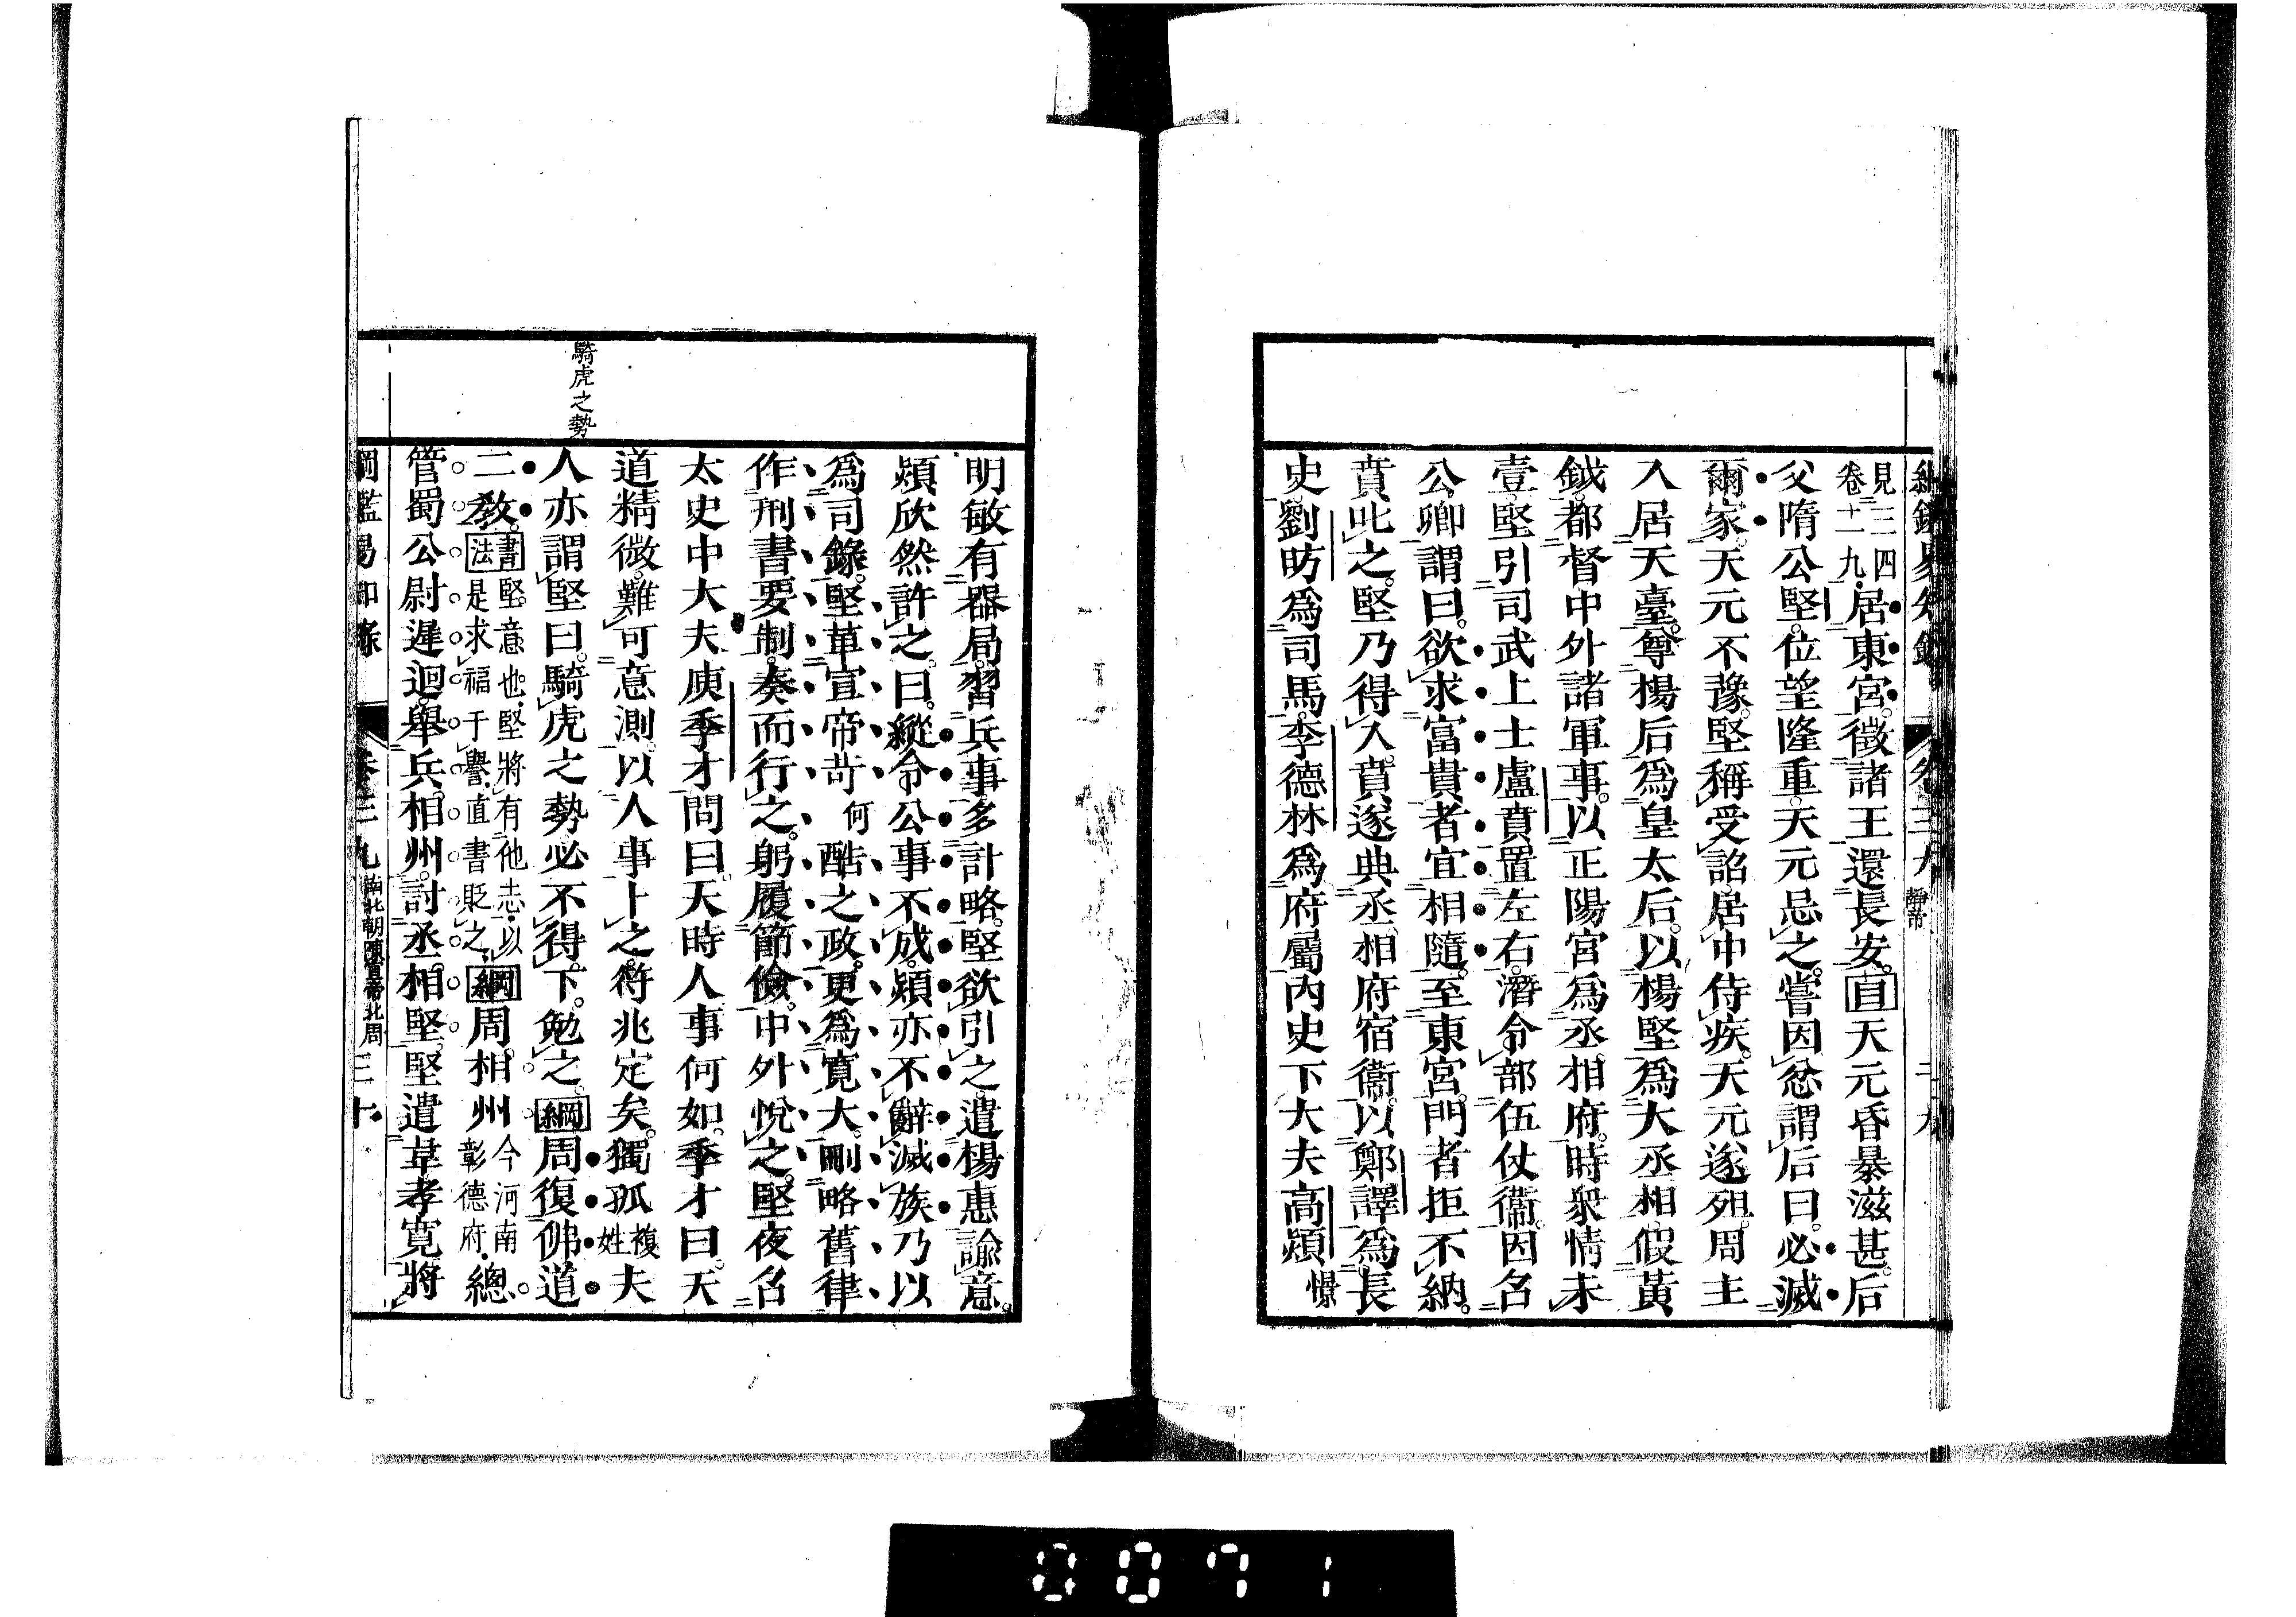 綱鑑易知錄 卷三九 靜帝 二十九
見三四
卷十九居東宮徵諸王還長安目天元昏暴滋甚后
父隋公堅位望隆重天元忌之嘗因忿謂后曰必滅
爾家天元不豫堅稱受詔居中侍疾天元遂殂周主
入居天臺尊楊后爲皇太后以楊堅爲大丞相假黃
鉞都督中外諸軍事以正陽宮爲丞相府時衆情未
壹堅引司武上士盧賁置左右潛令部伍仗衞因召
公卿謂曰欲求富貴者宜相隨至東宮門者拒不納
賁叱之堅乃得入賁遂典丞相府宿衞以鄭譯爲長
史劉昉爲司馬李德林爲府屬內史下大夫高熲憬
明敏有器局習兵事多計略堅欲引之遣楊惠諭意
熲欣然許之曰縱令公事不成熲亦不辭滅族乃以
爲司錄堅革宣帝苛何酷之政更爲寬大刪略舊律
作刑書要制奏而行之躬履節儉中外悅之堅夜召
太史中大夫庾季才問曰天時人事何如季才曰天
道精微難可意測以人事卜之符兆定矣獨孤複姓夫
騎虎之勢
人亦謂堅曰騎虎之勢必不得下勉之綱周復佛道
二敎書法堅意也堅將有他志以
是求福于譽直書貶之綱周相州今河南
彰德府總
管蜀公尉遲迥舉兵相州討丞相堅堅遣韋孝寬將
綱鑑易知錄 卷三九 南北朝陳宣帝北周 三十
0071